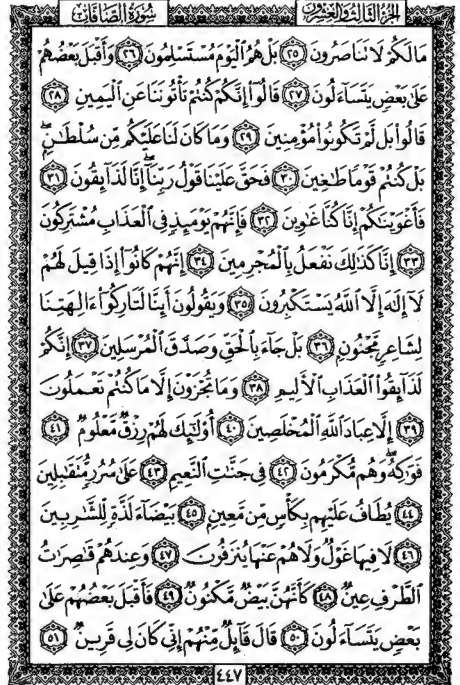 سُورَةُ الصَّافَّاتِ الجُزْءُ الثَّالِثُ وَالعِشْرُونَ
مَا لَكُمْ لَا تَنَاصَرُونَ ٢٥ بَلْ هُمُ ٱلْيَوْمَ مُسْتَسْلِمُونَ ٢٦ وَأَقْبَلَ بَعْضُهُمْ
عَلَىٰ بَعْضٍ يَتَسَآءَلُونَ ٢٧ قَالُوٓا۟ إِنَّكُمْ كُنتُمْ تَأْتُونَنَا عَنِ ٱلْيَمِينِ ٢٨
قَالُوا۟ بَل لَّمْ تَكُونُوا۟ مُؤْمِنِينَ ٢٩ وَمَا كَانَ لَنَا عَلَيْكُم مِّن سُلْطَٰنٍۭ ۖ
بَلْ كُنتُمْ قَوْمًا طَٰغِينَ ٣٠ فَحَقَّ عَلَيْنَا قَوْلُ رَبِّنَآ ۖ إِنَّا لَذَآئِقُونَ ٣١
فَأَغْوَيْنَٰكُمْ إِنَّا كُنَّا غَٰوِينَ ٣٢ فَإِنَّهُمْ يَوْمَئِذٍ فِى ٱلْعَذَابِ مُشْتَرِكُونَ
٣٣ إِنَّا كَذَٰلِكَ نَفْعَلُ بِٱلْمُجْرِمِينَ ٣٤ إِنَّهُمْ كَانُوٓا۟ إِذَا قِيلَ لَهُمْ
لَآ إِلَٰهَ إِلَّا ٱللَّهُ يَسْتَكْبِرُونَ ٣٥ وَيَقُولُونَ أَئِنَّا لَتَارِكُوٓا۟ ءَالِهَتِنَا
لِشَاعِرٍ مَّجْنُونٍۭ ٣٦ بَلْ جَآءَ بِٱلْحَقِّ وَصَدَّقَ ٱلْمُرْسَلِينَ ٣٧ إِنَّكُمْ
لَذَآئِقُوا۟ ٱلْعَذَابِ ٱلْأَلِيمِ ٣٨ وَمَا تُجْزَوْنَ إِلَّا مَا كُنتُمْ تَعْمَلُونَ
٣٩ إِلَّا عِبَادَ ٱللَّهِ ٱلْمُخْلَصِينَ ٤٠ أُو۟لَٰٓئِكَ لَهُمْ رِزْقٌ مَّعْلُومٌ ٤١
فَوَٰكِهُ ۖ وَهُم مُّكْرَمُونَ ٤٢ فِى جَنَّٰتِ ٱلنَّعِيمِ ٤٣ عَلَىٰ سُرُرٍ مُّتَقَٰبِلِينَ
٤٤ يُطَافُ عَلَيْهِم بِكَأْسٍ مِّن مَّعِينٍۭ ٤٥ بَيْضَآءَ لَذَّةٍ لِّلشَّٰرِبِينَ
٤٦ لَا فِيهَا غَوْلٌ وَلَا هُمْ عَنْهَا يُنزَفُونَ ٤٧ وَعِندَهُمْ قَٰصِرَٰتُ
ٱلطَّرْفِ عِينٌ ٤٨ كَأَنَّهُنَّ بَيْضٌ مَّكْنُونٌ ٤٩ فَأَقْبَلَ بَعْضُهُمْ عَلَىٰ
بَعْضٍ يَتَسَآءَلُونَ ٥٠ قَالَ قَآئِلٌ مِّنْهُمْ إِنِّى كَانَ لِى قَرِينٌ ٥١
٤٤٧